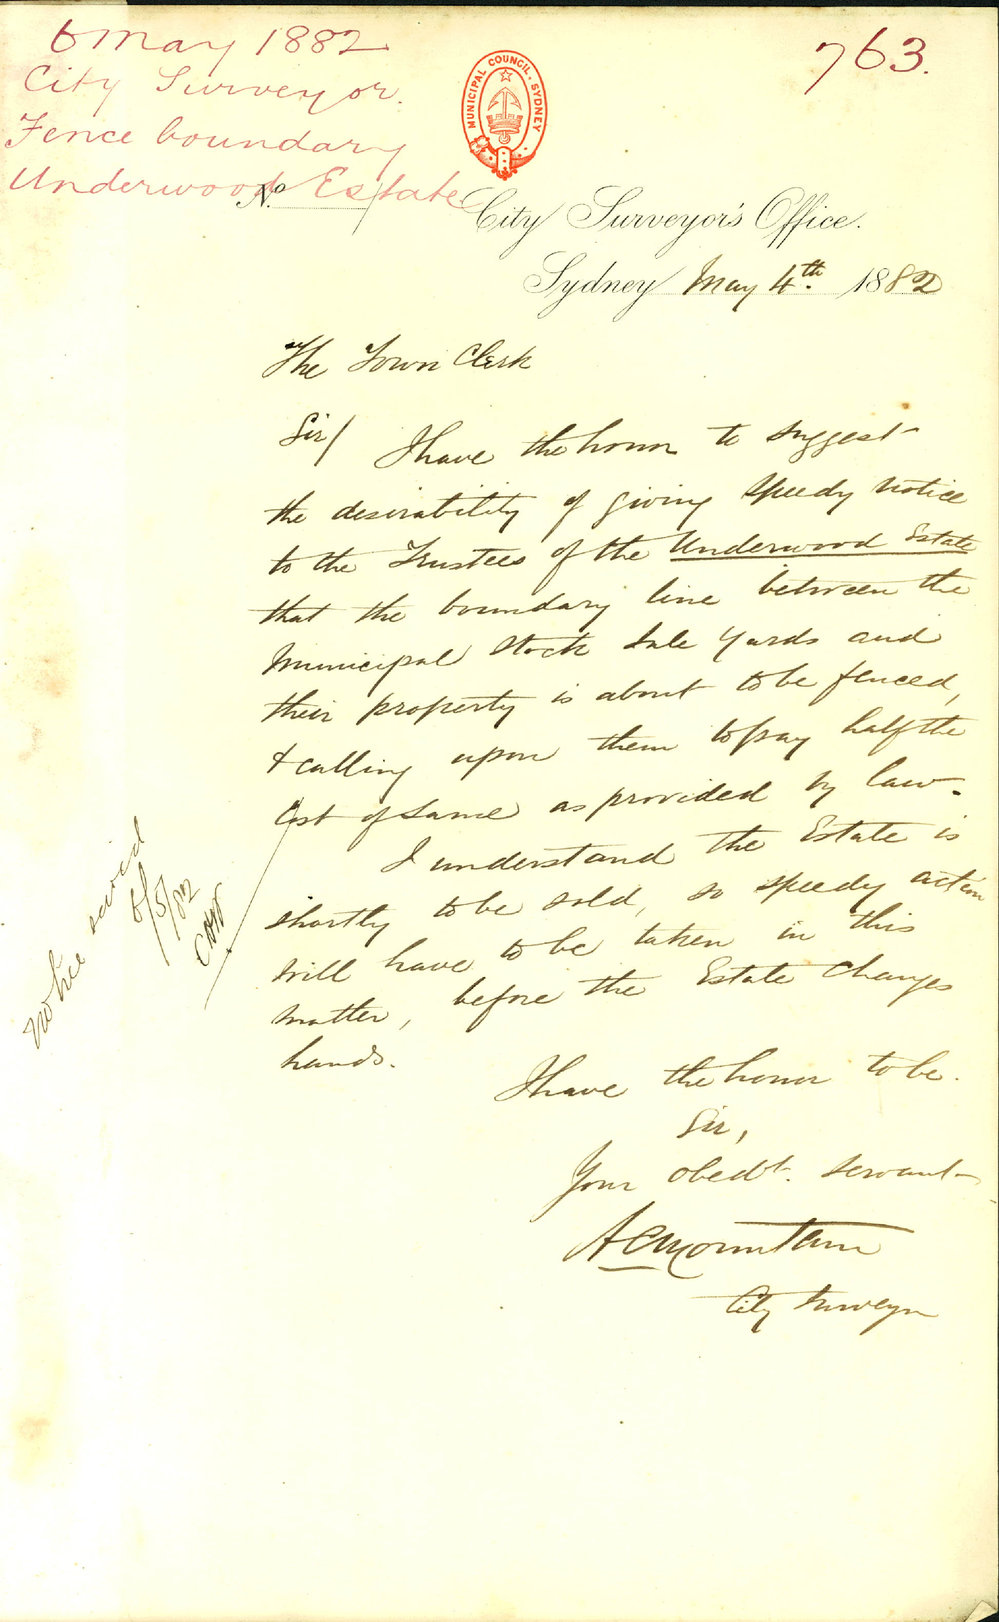 6 May 1882
City Surveyor.
Fence boundary
Underwood Estate
763.
MUNICIPAL COUNCIL, SYDNEY
No.
City Surveyor's Office.
Sydney May 4th. 1882
The Town Clerk
Sir/ I have the honor to suggest
the desirability of giving speedy notice
to the Trustees of the Underwood Estate
that the boundary line between the
Municipal Stock Sale Yards and
their property is about to be fenced,
& calling upon them to pay half the
Cost of same as provided by law.
I understand the Estate is
shortly to be sold, so speedy action
will have to be taken in this
matter, before the Estate changes
hands.
I have the honor to be.
Sir,
Your obedt. servant
A C Mountain
City Surveyor
notice served
6/5/82